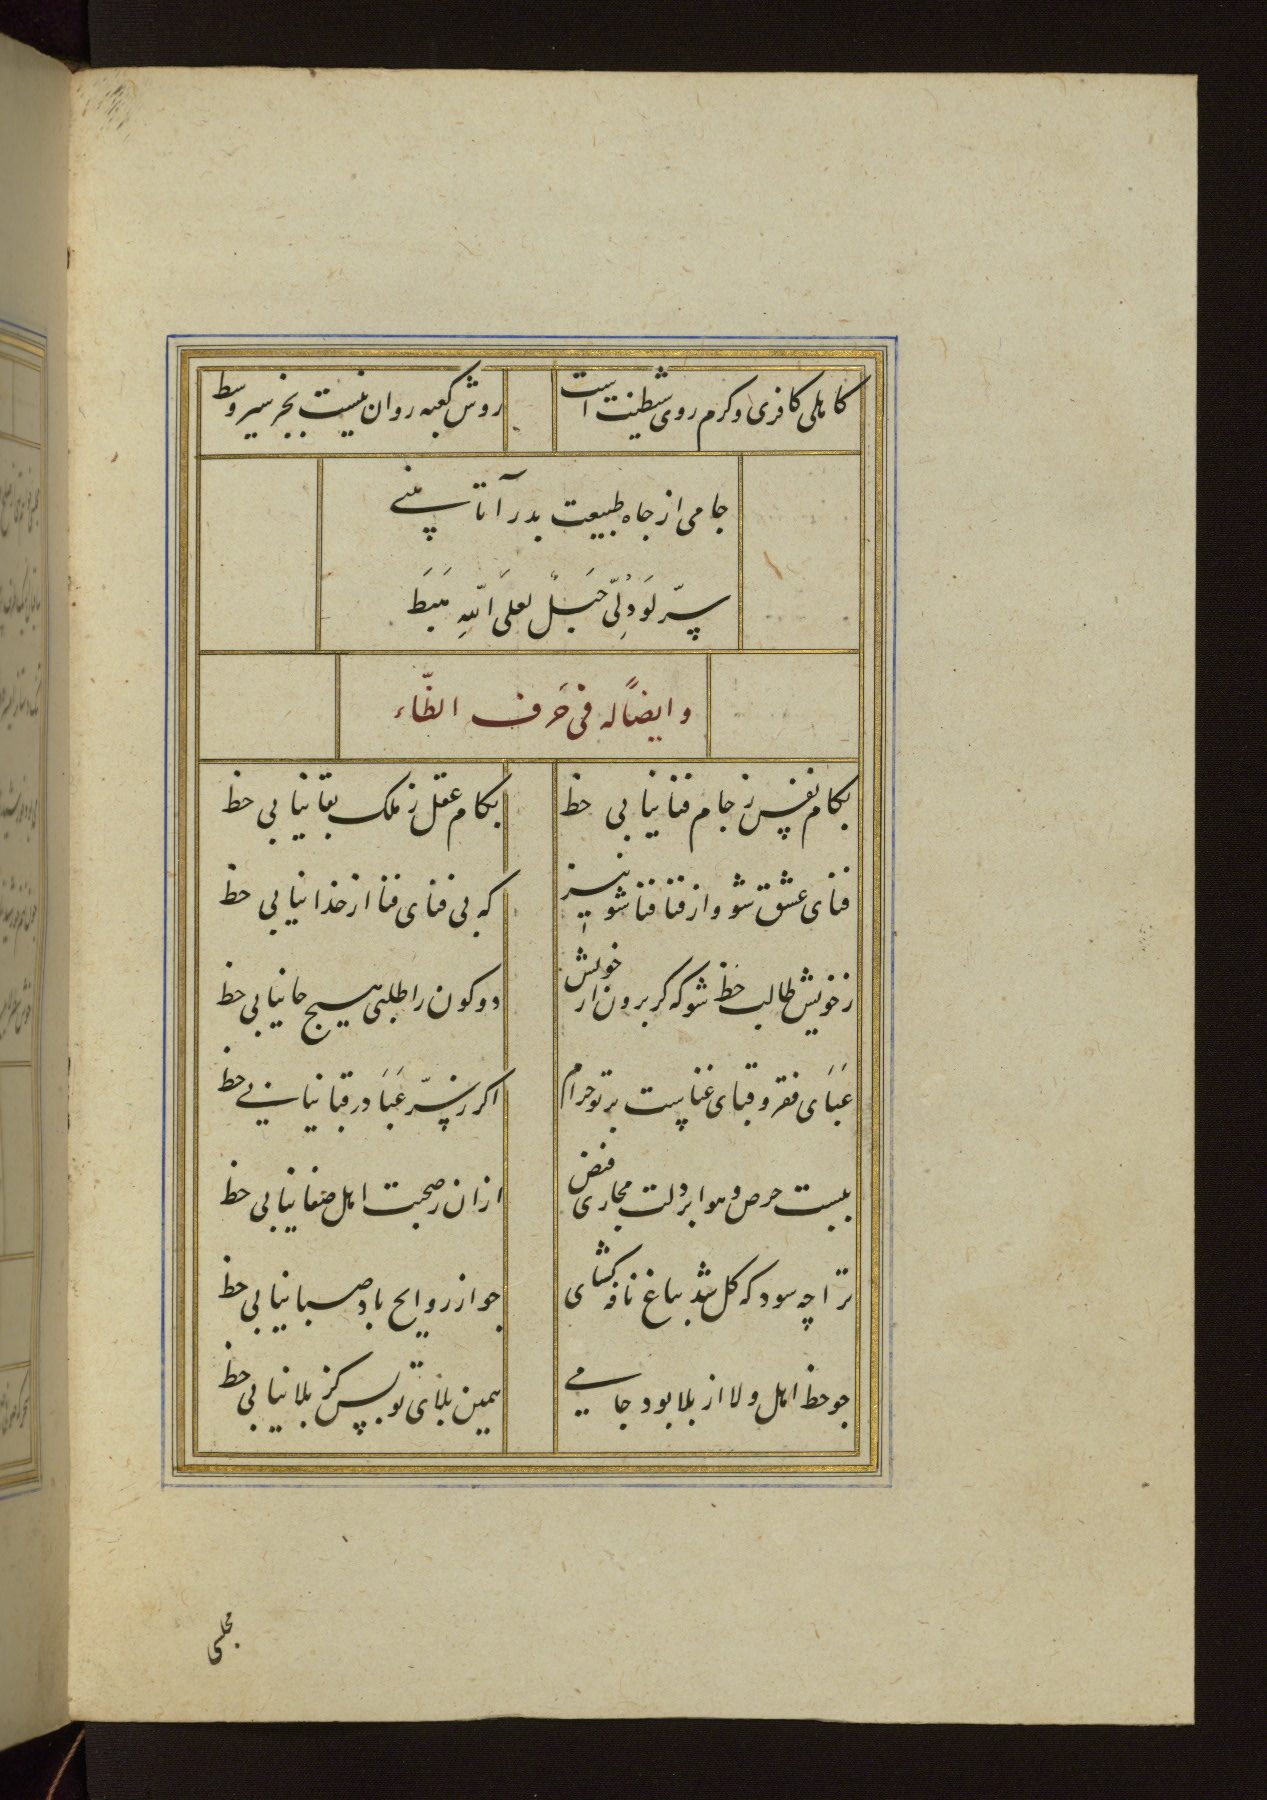 کاهلی کافری و کرم روی شیطنت است روش کعبه روان نیست بجز سیر وسط
جامی از جاه طبیعت بدر آتا بینی
سرّ لَو دُلِّیَ حَبلٌ لَعلَی اللّهِ هَبَطَ
و ایضاً له فی حَرف الظّاء
بکام نفس ز جام فنا نیابی حظ بکام عقل ز ملک بقا نیابی حظ
فنای عشق شو و از فنا فنا شو نیز که بی فنای فنا از خدا نیابی حظ
ز خویش طالب حظ شو که کر برون از خویش دو کون را طلبی هیچ جا نیابی حظ
عَبَای فقر و قبای غناست بر تو حرام اکر ز سرّ عَبَا در قبا نیابی حظ
ببست حرص و هوا بر دلت مجاری فیض از ان ز صحبت اهل صفا نیابی حظ
ترا چه سود که کل شد بباغ نافه کشای جو از روایح باد صبا نیابی حظ
جو حظ اهل ولا از بلا بود جامی همین بلای تو بس کز بلا نیابی حظ